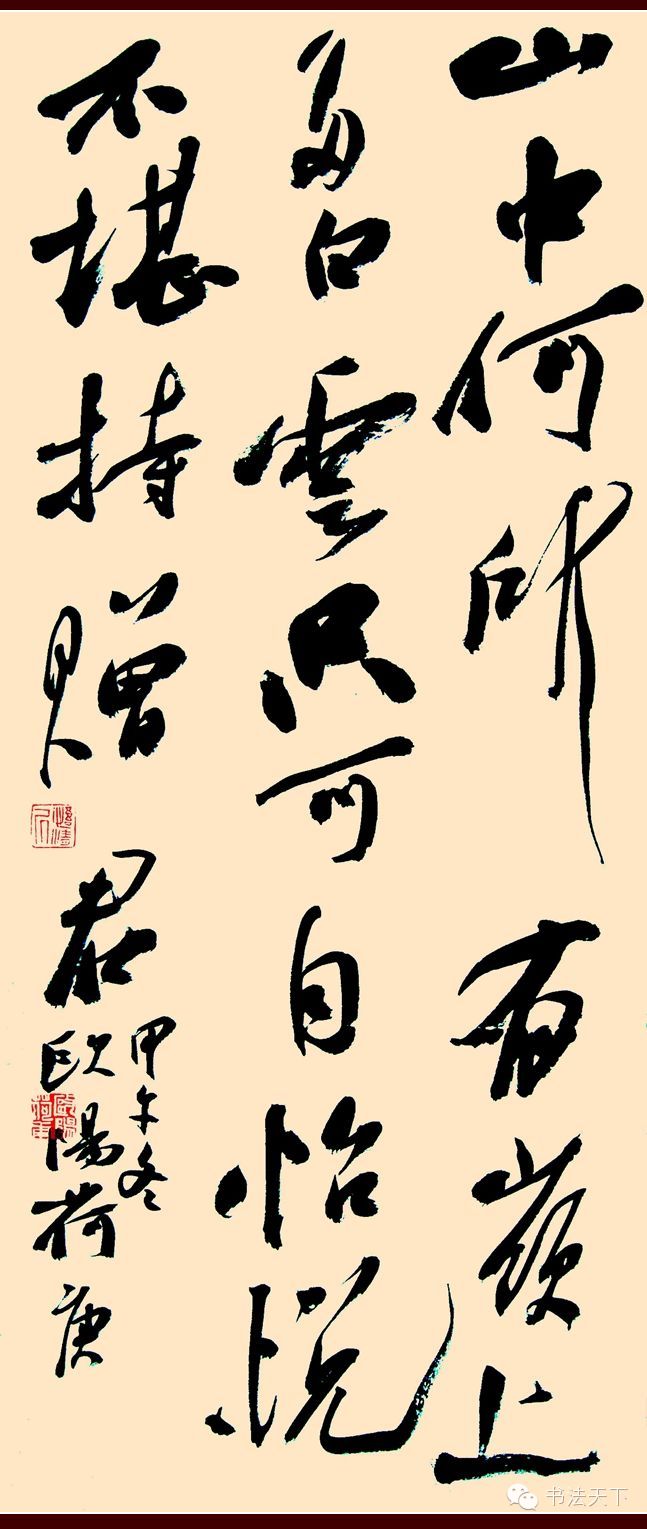 山中何所有嶺上
多白雲只可自怡悦
不堪持贈君
甲午冬
歐陽荷庚
書法天下